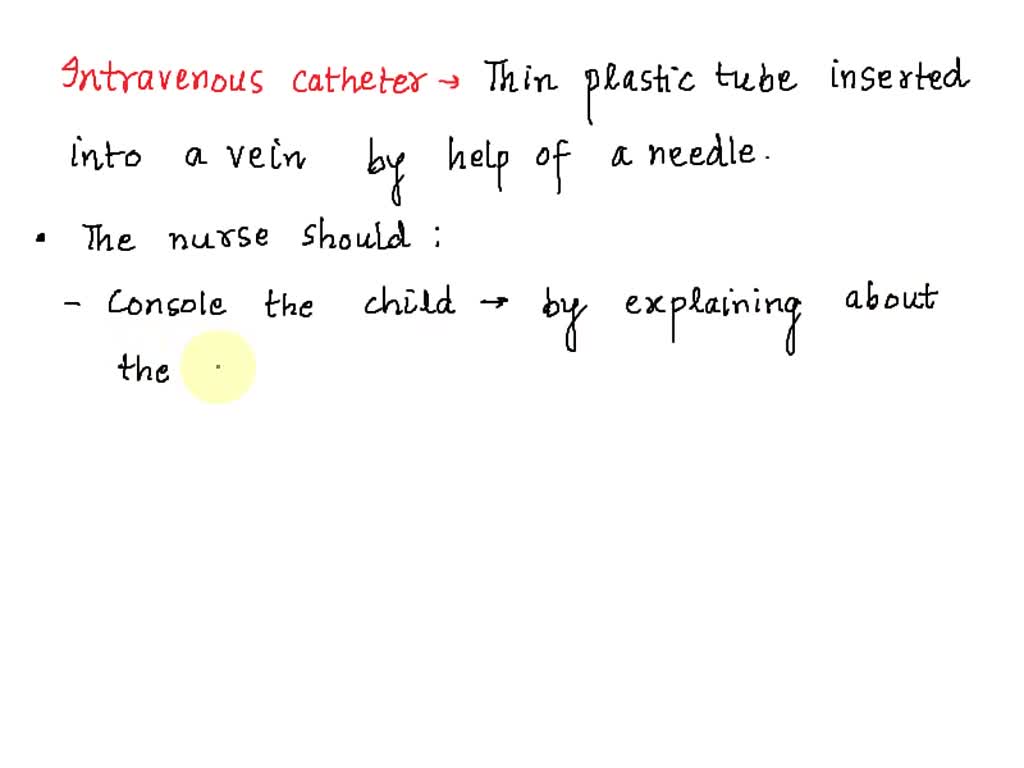 Intravenous catheter → Thin plastic tube inserted
into a vein by help of a needle.
• The nurse should :
- Console the child → by explaining about
the